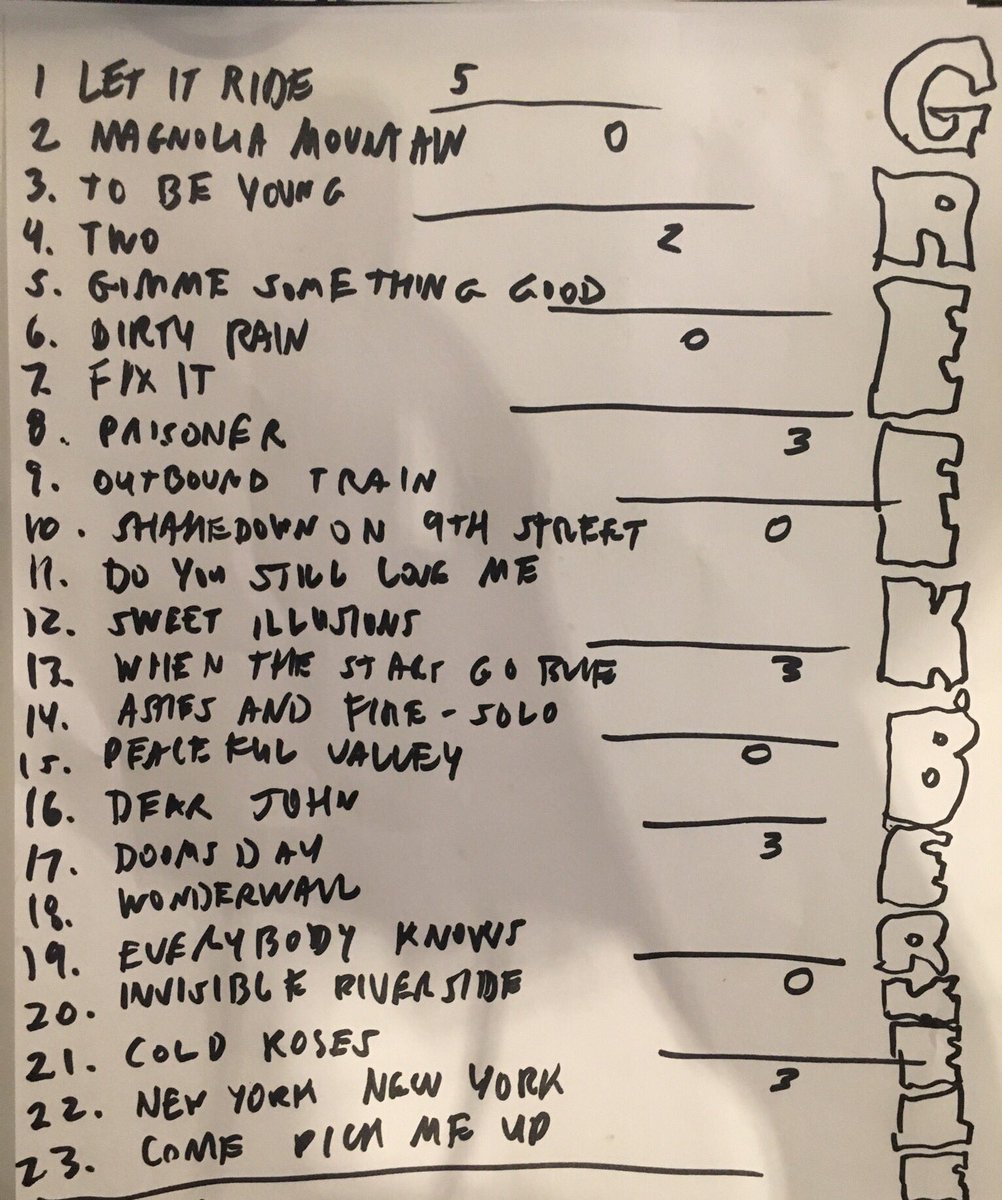 1 LET IT RIDE 5
2 MAGNOLIA MOUNTAIN 0
3. TO BE YOUNG
4. TWO 2
5. GIMME SOMETHING GOOD
6. DIRTY RAIN 0
7 FIX IT
8. PRISONER 3
9. OUTBOUND TRAIN
10. SHAKEDOWN ON 9TH STREET 0
11. DO YOU STILL LOVE ME
12. SWEET ILLUSIONS
13. WHEN THE STARS GO BLUE 3
14. ASHES AND FIRE - SOLO
15. PEACEFUL VALLEY 0
16. DEAR JOHN
17. DOOMSDAY 3
18. WONDERWALL
19. EVERYBODY KNOWS
20. INVISIBLE RIVERSIDE 0
21. COLD ROSES
22. NEW YORK NEW YORK 3
23. COME PICK ME UP
GREEK BERKELE